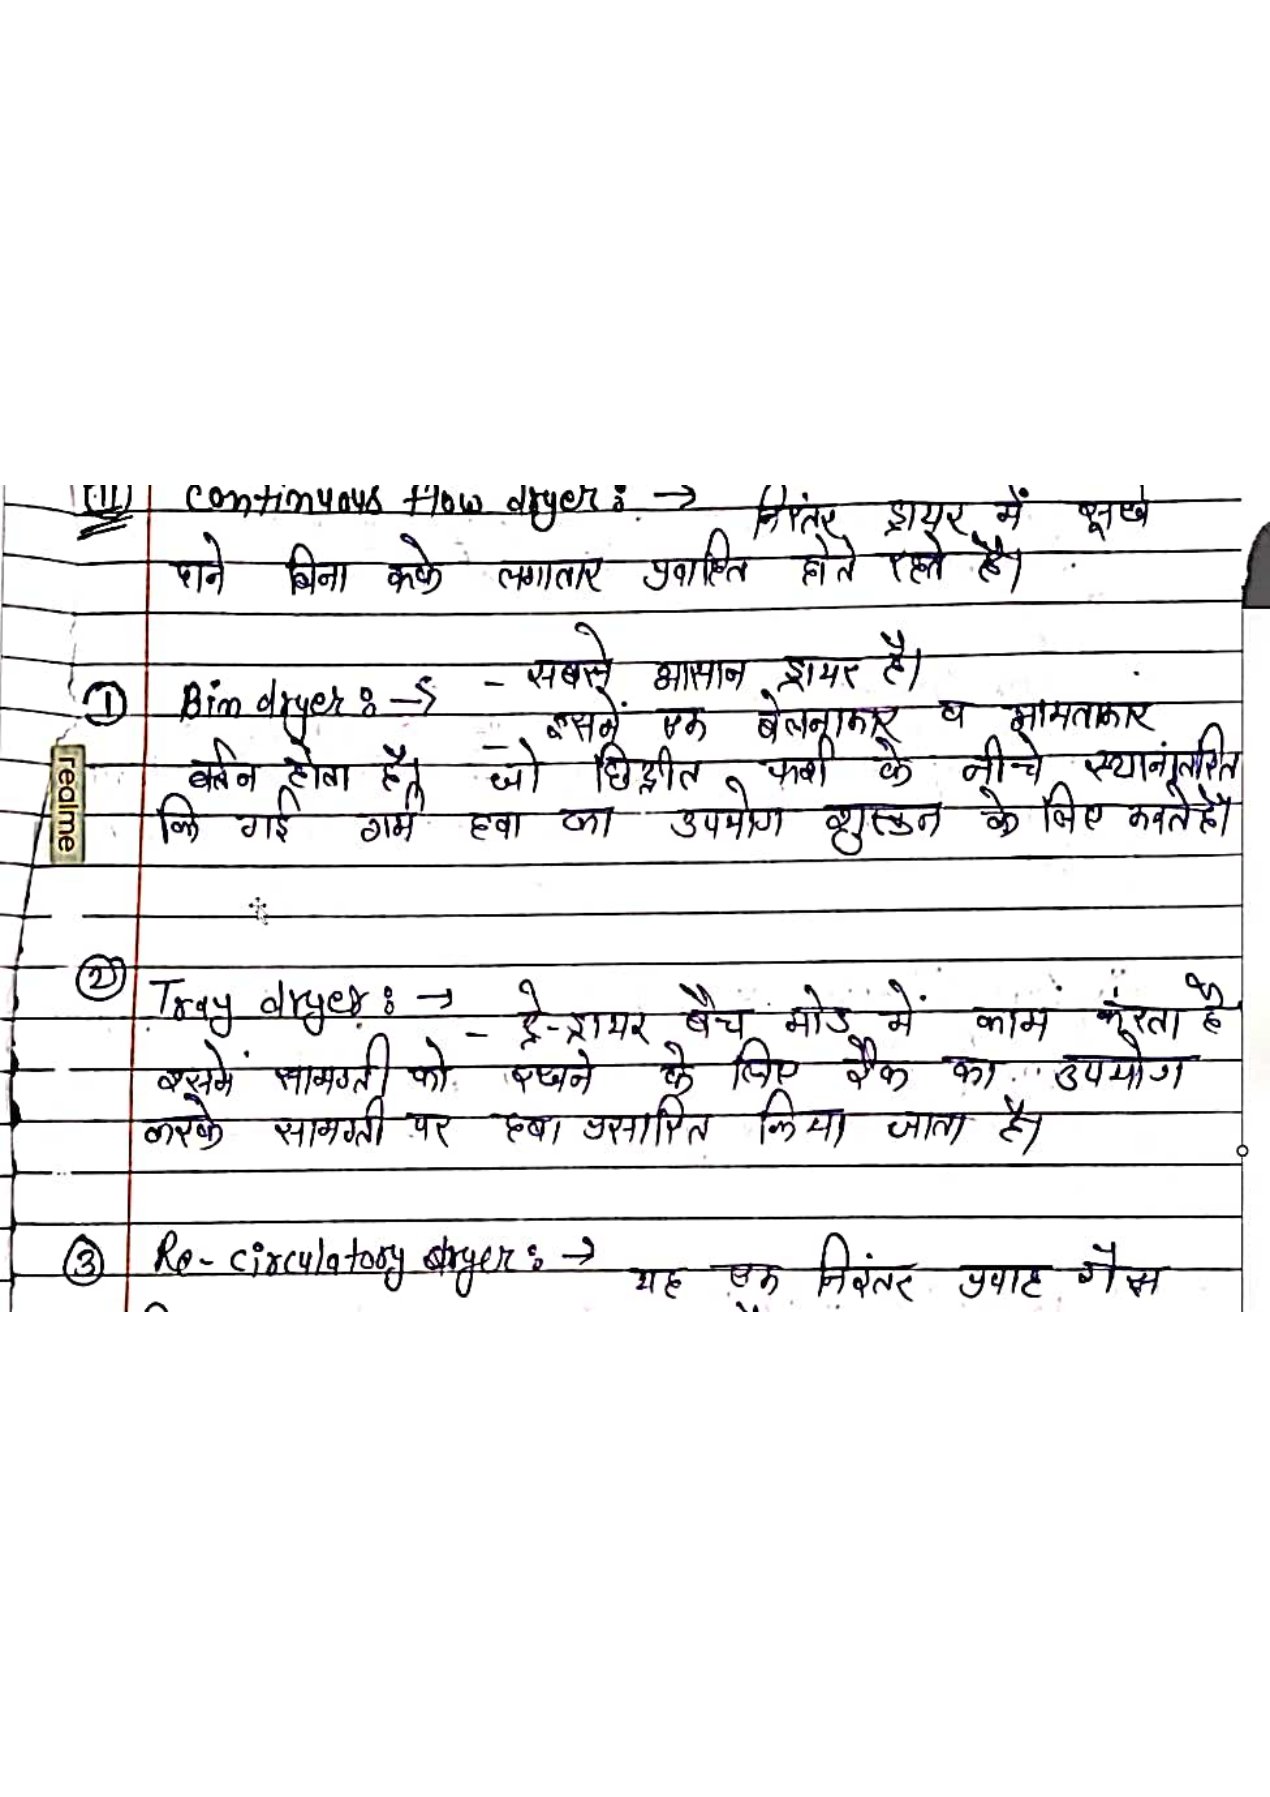 (II) Continuous flow dryer : → निरंतर ड्रायर में सूखे
दाने बिना रुके लगातार प्रवाहित होते रहते है।
① Bin dryer : → - सबसे आसान ड्रायर है।
- इसमें एक बेलनाकार व आयताकार
बर्तन होता है, जो छिद्रीत फर्श के नीचे स्थानांतरित
कि गई गर्म हवा का उपयोग के लिए करते है।
realme
② Tray dryer : → - ट्रे-ड्रायर बैच मोड में काम करता है
इसमें सामग्री को रखने के लिए रैक का उपयोग
करके सामग्री पर हवा प्रसारित किया जाता है।
③ Re-circulatory dryer : → यह एक निरंतर प्रवाह गैस